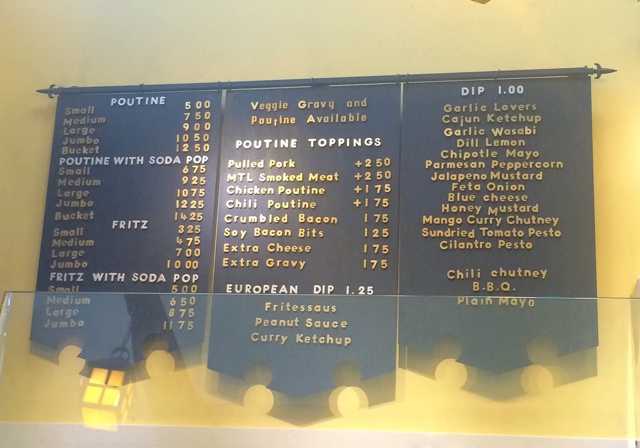 POUTINE
Small 5 00
Medium 7 50
Large 9 00
Jumbo 10 50
Bucket 12 50
POUTINE WITH SODA POP
Small 6 75
Medium 9 25
Large 10 75
Jumbo 12 25
Bucket 14 25
FRITZ
Small 3 25
Medium 4 75
Large 7 00
Jumbo 10 00
FRITZ WITH SODA POP
Small 5 00
Medium 6 50
Large 8 75
Jumbo 11 75
Veggie Gravy and
Poutine Available
POUTINE TOPPINGS
Pulled Pork +2 50
MTL Smoked Meat +2 50
Chicken Poutine +1 75
Chili Poutine +1 75
Crumbled Bacon 1 75
Soy Bacon Bits 1 25
Extra Cheese 1 75
Extra Gravy 1 75
EUROPEAN DIP 1.25
Fritessaus
Peanut Sauce
Curry Ketchup
DIP 1.00
Garlic Lovers
Cajun Ketchup
Garlic Wasabi
Dill Lemon
Chipotle Mayo
Parmesan Peppercorn
Jalapeno Mustard
Feta Onion
Blue cheese
Honey Mustard
Mango Curry Chutney
Sundried Tomato Pesto
Cilantro Pesto
Chili chutney
B.B.Q.
Plain Mayo